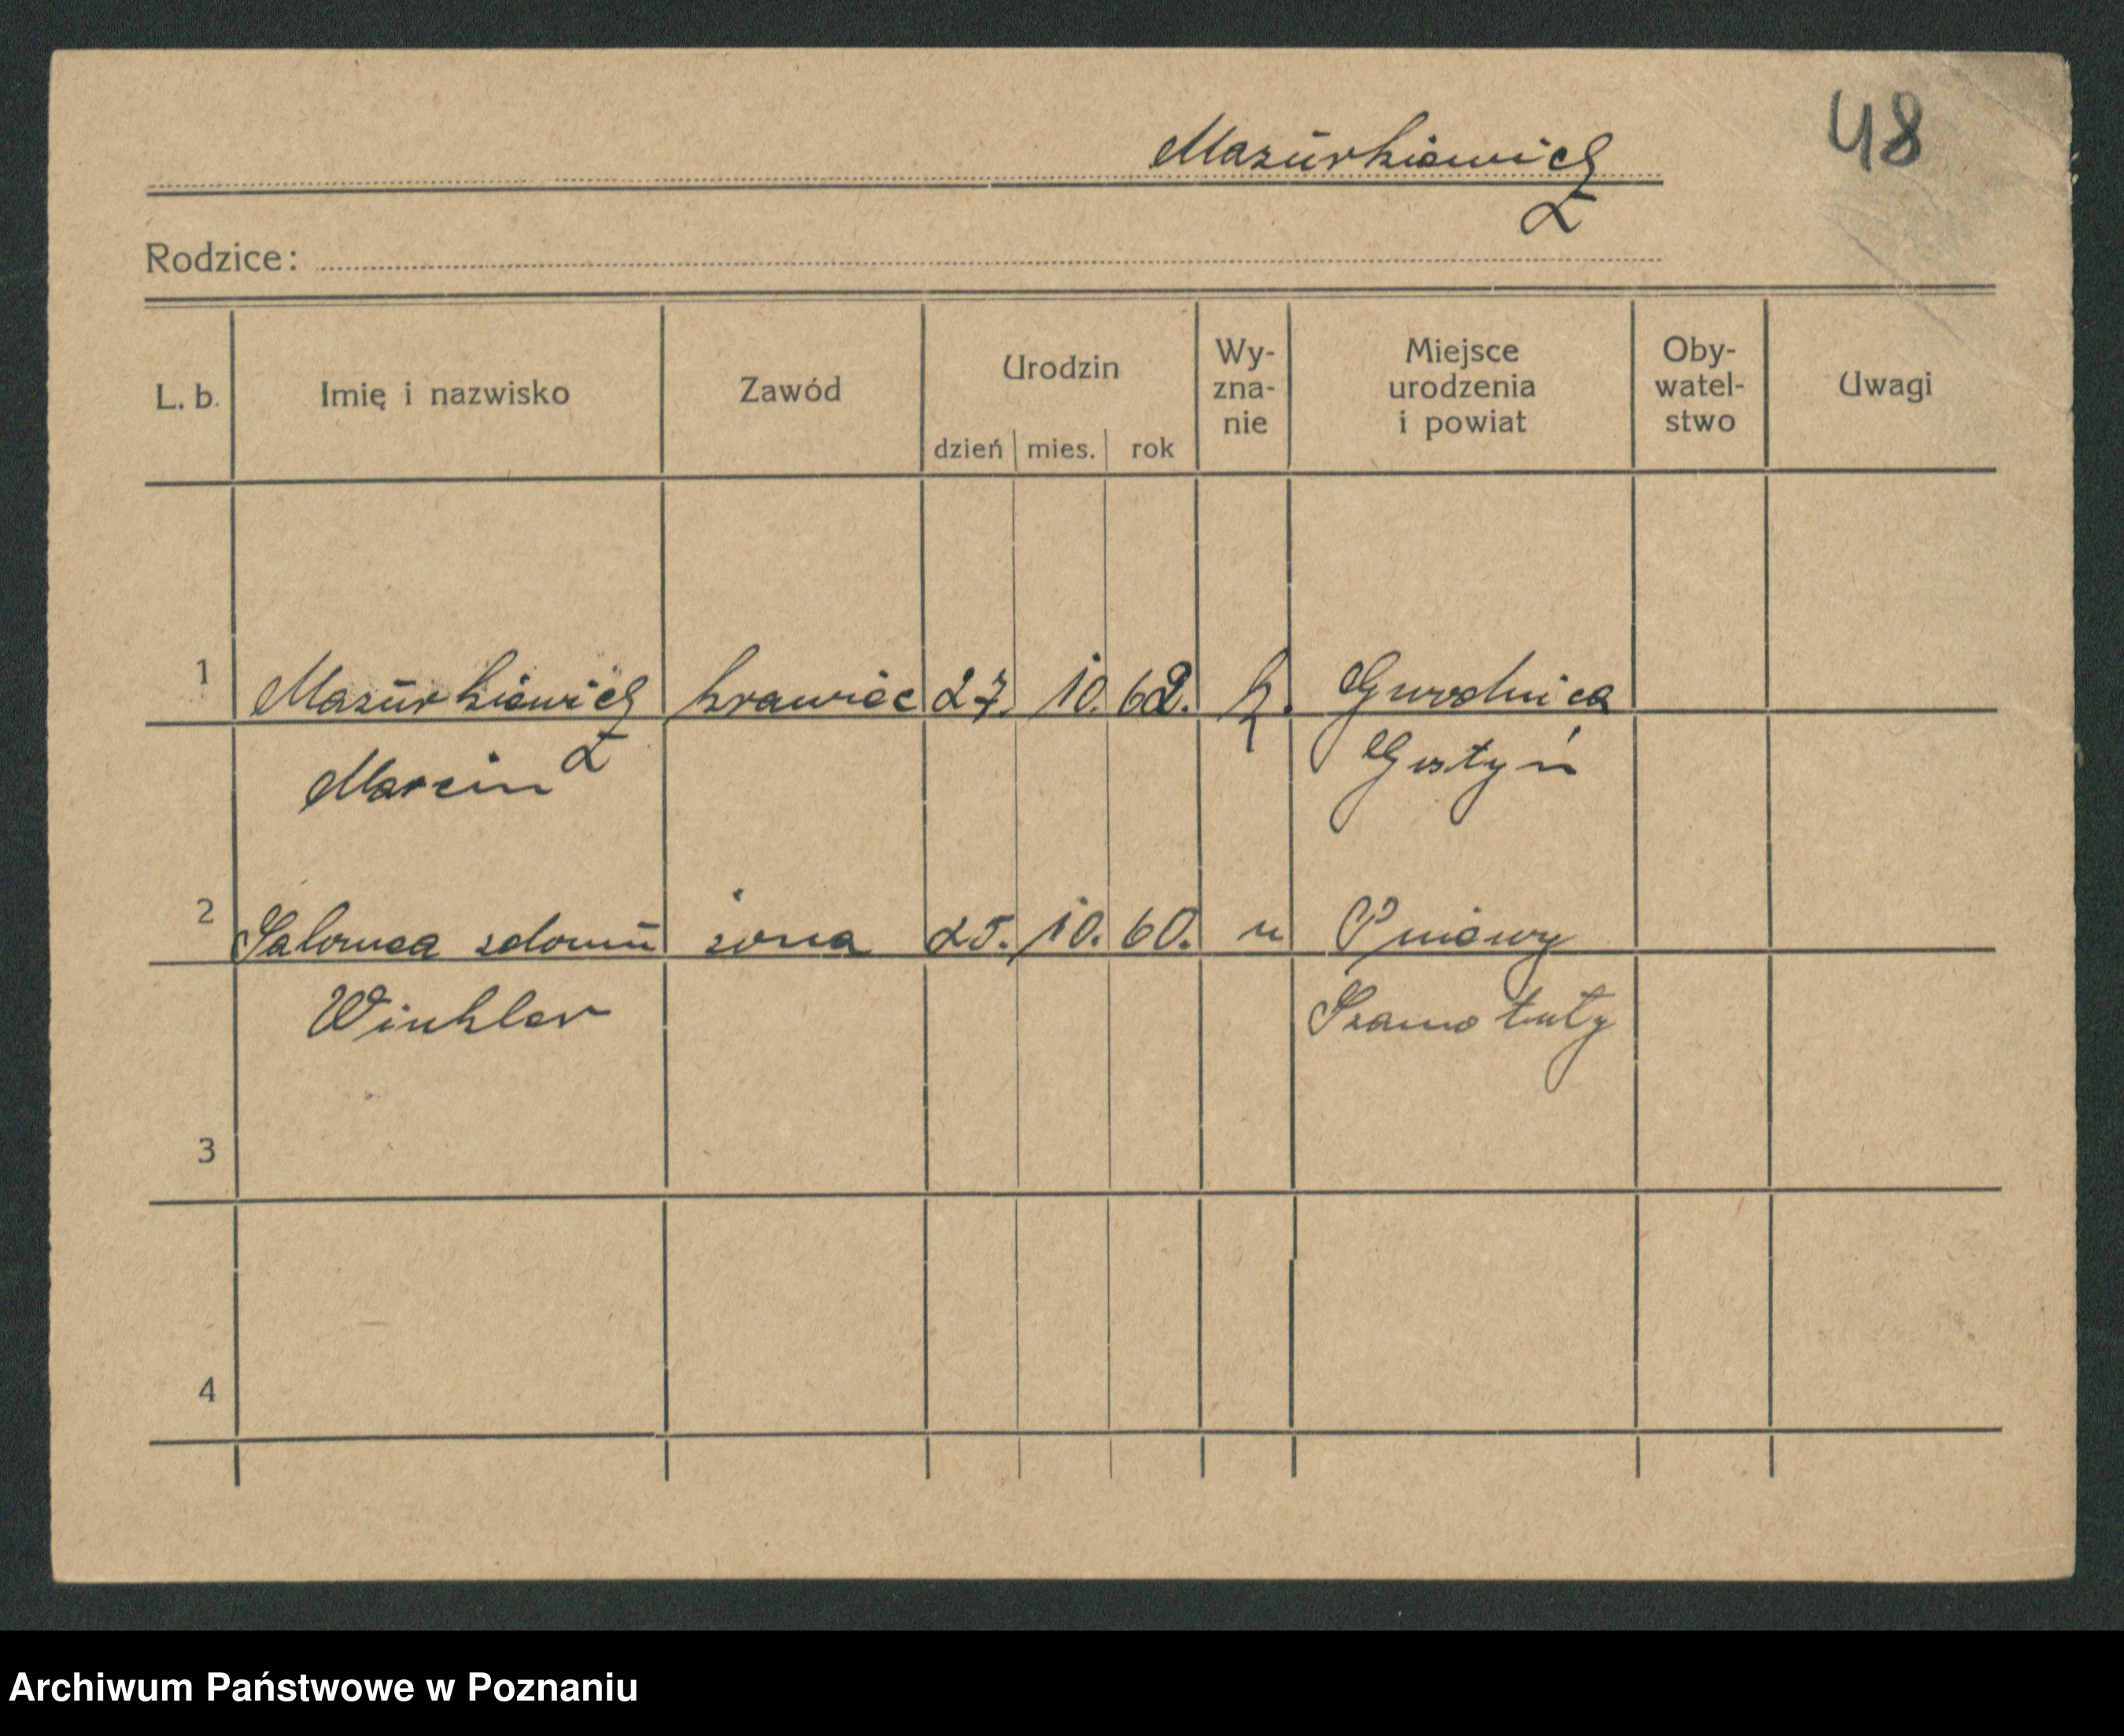 48
Mazurkiewicz
Rodzice:
L. b. Imię i nazwisko Zawód Urodzin Wy- Miejsce Oby- Uwagi
zna- urodzenia watel-
nie i powiat stwo
dzień mies. rok
1 Mazurkiewicz krawiec 27. 10. 62. k.
Marcin Gostyń
2 Salomea zdomu żona 25. 10. 60. " Pniewy
Winkler Szamotuły
3
4
Archiwum Państwowe w Poznaniu